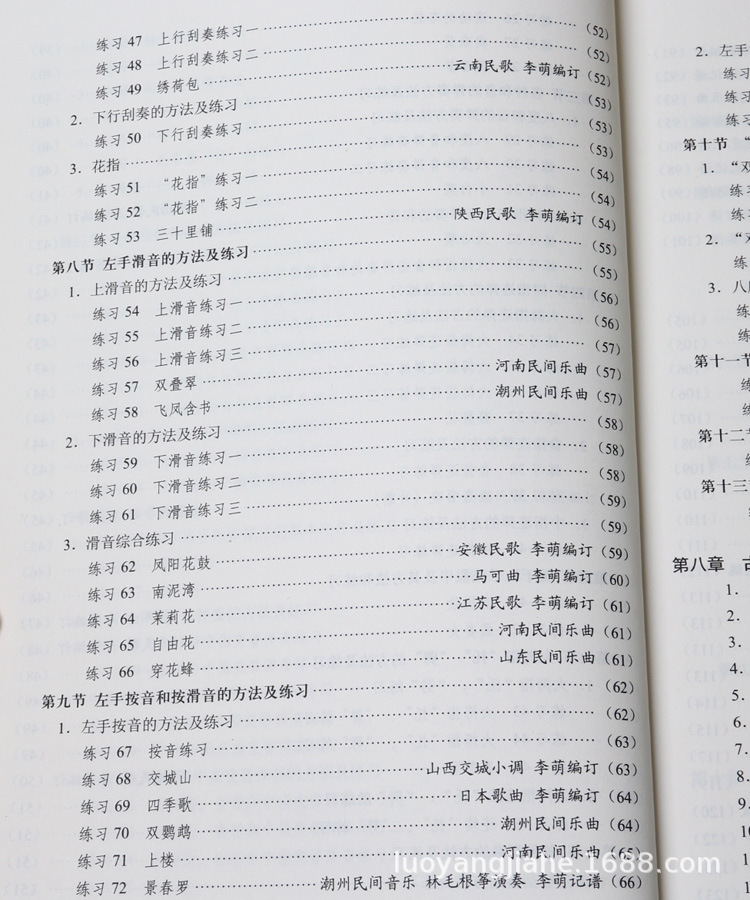 练习 47 上行刮奏练习一 (52)
练习 48 上行刮奏练习二 (52)
练习 49 绣荷包 云南民歌 李萌编订 (52)
2. 下行刮奏的方法及练习 (53)
练习 50 下行刮奏练习 (53)
3. 花指 (53)
练习 51 “花指”练习一 (54)
练习 52 “花指”练习二 (54)
练习 53 三十里铺 陕西民歌 李萌编订 (54)
第八节 左手滑音的方法及练习 (55)
1. 上滑音的方法及练习 (55)
练习 54 上滑音练习一 (56)
练习 55 上滑音练习二 (56)
练习 56 上滑音练习三 (57)
练习 57 双叠翠 河南民间乐曲 (57)
练习 58 飞凤含书 潮州民间乐曲 (57)
2. 下滑音的方法及练习 (58)
练习 59 下滑音练习一 (58)
练习 60 下滑音练习二 (58)
练习 61 下滑音练习三 (59)
3. 滑音综合练习 (59)
练习 62 凤阳花鼓 安徽民歌 李萌编订 (59)
练习 63 南泥湾 马可曲 李萌编订 (60)
练习 64 茉莉花 江苏民歌 李萌编订 (61)
练习 65 自由花 河南民间乐曲 (61)
练习 66 穿花蜂 山东民间乐曲 (61)
第九节 左手按音和按滑音的方法及练习 (62)
1. 左手按音的方法及练习 (62)
练习 67 按音练习 (63)
练习 68 交城山 山西交城小调 李萌编订 (63)
练习 69 四季歌 日本歌曲 李萌编订 (64)
练习 70 双鹦鹉 潮州民间乐曲 (64)
练习 71 上楼 河南民间乐曲 (65)
练习 72 景春罗 潮州民间音乐 林毛根筝演奏 李萌记谱 (66)
2. 左手
练习
练习
练习
第十节 “
1. “双
练习
练习
2. “双
练
3. 八
练
练
第十一节
练
练
第十二节
第十三节
第八章 古
1.
2.
3.
4.
5.
6.
7.
8.
9.
10
11
1
luoyangjiahe.1688.com